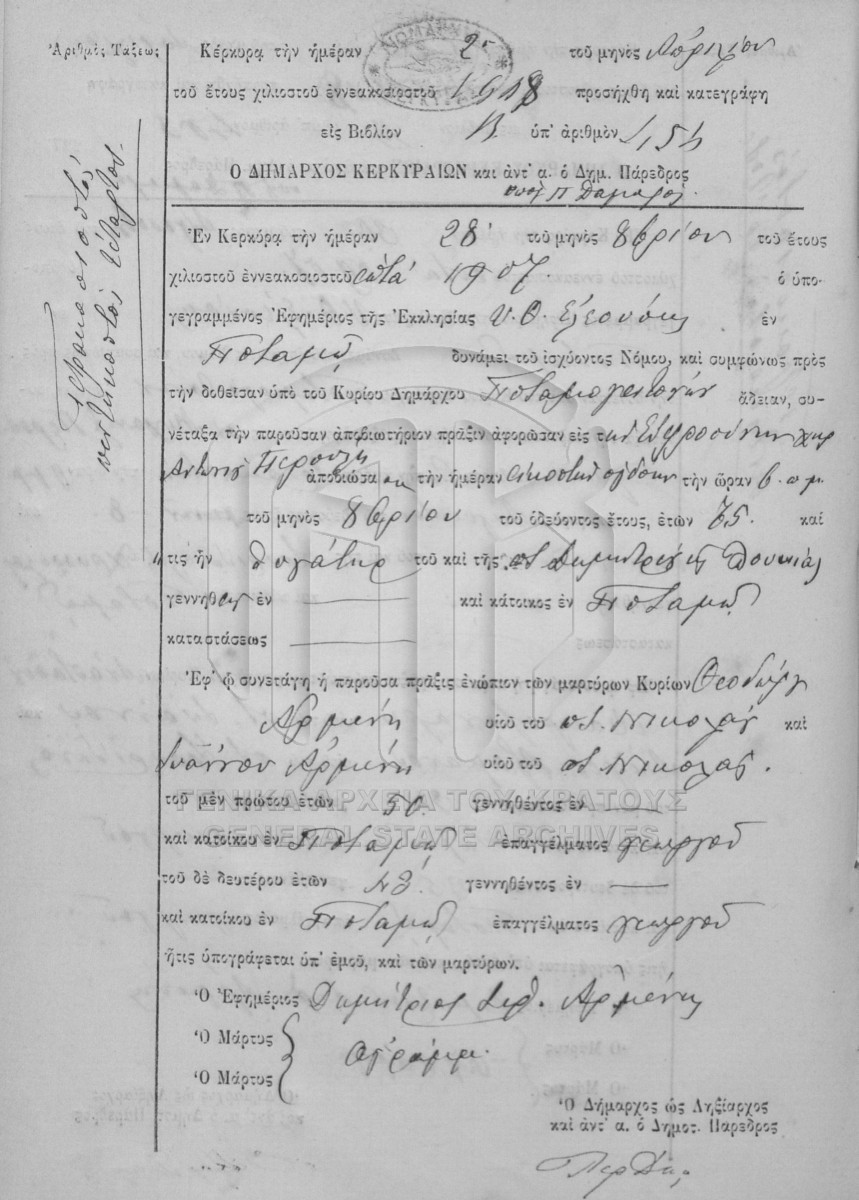 Ἀριθμὸς Τάξεως
τετρακοσιοστὸς
πεντηκοστὸς τέταρτος
Κέρκυρα τὴν ἡμέραν 2 τοῦ μηνὸς Ἀπριλίου
τοῦ ἔτους χιλιοστοῦ ἐννεακοσιοστοῦ 1908 προσήχθη καὶ κατεγράφη
εἰς Βιβλίον ὑπ' ἀριθμὸν
Ο ΔΗΜΑΡΧΟΣ ΚΕΡΚΥΡΑΙΩΝ καὶ ἀντ' α. ὁ Δημ. Πάρεδρος
Ἐν Κερκύρᾳ τὴν ἡμέραν 28 τοῦ μηνὸς 8βρίου τοῦ ἔτους
χιλιοστοῦ ἐννεακοσιοστοῦ ἑπτά 1907 ὁ ὑπο-
γεγραμμένος Ἐφημέριος τῆς Ἐκκλησίας Υ. Θ. Ἐλεούσης ἐν
Ποταμῷ δυνάμει τοῦ ἰσχύοντος Νόμου, καὶ συμφώνως πρὸς
τὴν δοθεῖσαν ὑπὸ τοῦ Κυρίου Δημάρχου Ποταμογειτόνων ἄδειαν, συ-
νέταξα τὴν παροῦσαν ἀποβιωτήριον πρᾶξιν ἀφορῶσαν εἰς τὴν Εὐφροσύνην χήρ
Ἀντωνίου ἀποβιώσασαν τὴν ἡμέραν εἰκοστὴν ὀγδόην τὴν ὥραν 6. π. μ.
τοῦ μηνὸς 8βρίου τοῦ ὁδεύοντος ἔτους, ἐτῶν 75. καὶ
τις ἦν θυγάτηρ τοῦ καὶ τῆς ποτ. Δημητρίου
γεννηθεῖς ἐν — καὶ κάτοικος ἐν Ποταμῷ
καταστάσεως —
Ἐφ' ᾧ συνετάγη ἡ παροῦσα πρᾶξις ἐνώπιον τῶν μαρτύρων Κυρίων Θεοδώρου
Ἀρμένη υἱοῦ τοῦ ποτ. Νικολάου καὶ
Ἰωάννου Ἀρμένη υἱοῦ τοῦ ποτ. Νικολάου.
τοῦ μὲν πρώτου ἐτῶν 50. γεννηθέντος ἐν —
καὶ κατοίκου ἐν Ποταμῷ ἐπαγγέλματος γεωργοῦ
τοῦ δὲ δευτέρου ἐτῶν 43. γεννηθέντος ἐν —
καὶ κατοίκου ἐν Ποταμῷ ἐπαγγέλματος γεωργοῦ
ἥτις ὑπογράφεται ὑπ' ἐμοῦ, καὶ τῶν μαρτύρων.
Ὁ Ἐφημέριος Δημήτριος Ἀρμένης
Ὁ Μάρτυς
Ἀγράμμ.
Ὁ Μάρτυς
Ὁ Δήμαρχος ὡς Ληξίαρχος
καὶ ἀντ' α. ὁ Δημοτ. Πάρεδρος
ΓΕΝΙΚΑ ΑΡΧΕΙΑ ΤΟΥ ΚΡΑΤΟΥΣ
GENERAL STATE ARCHIVES